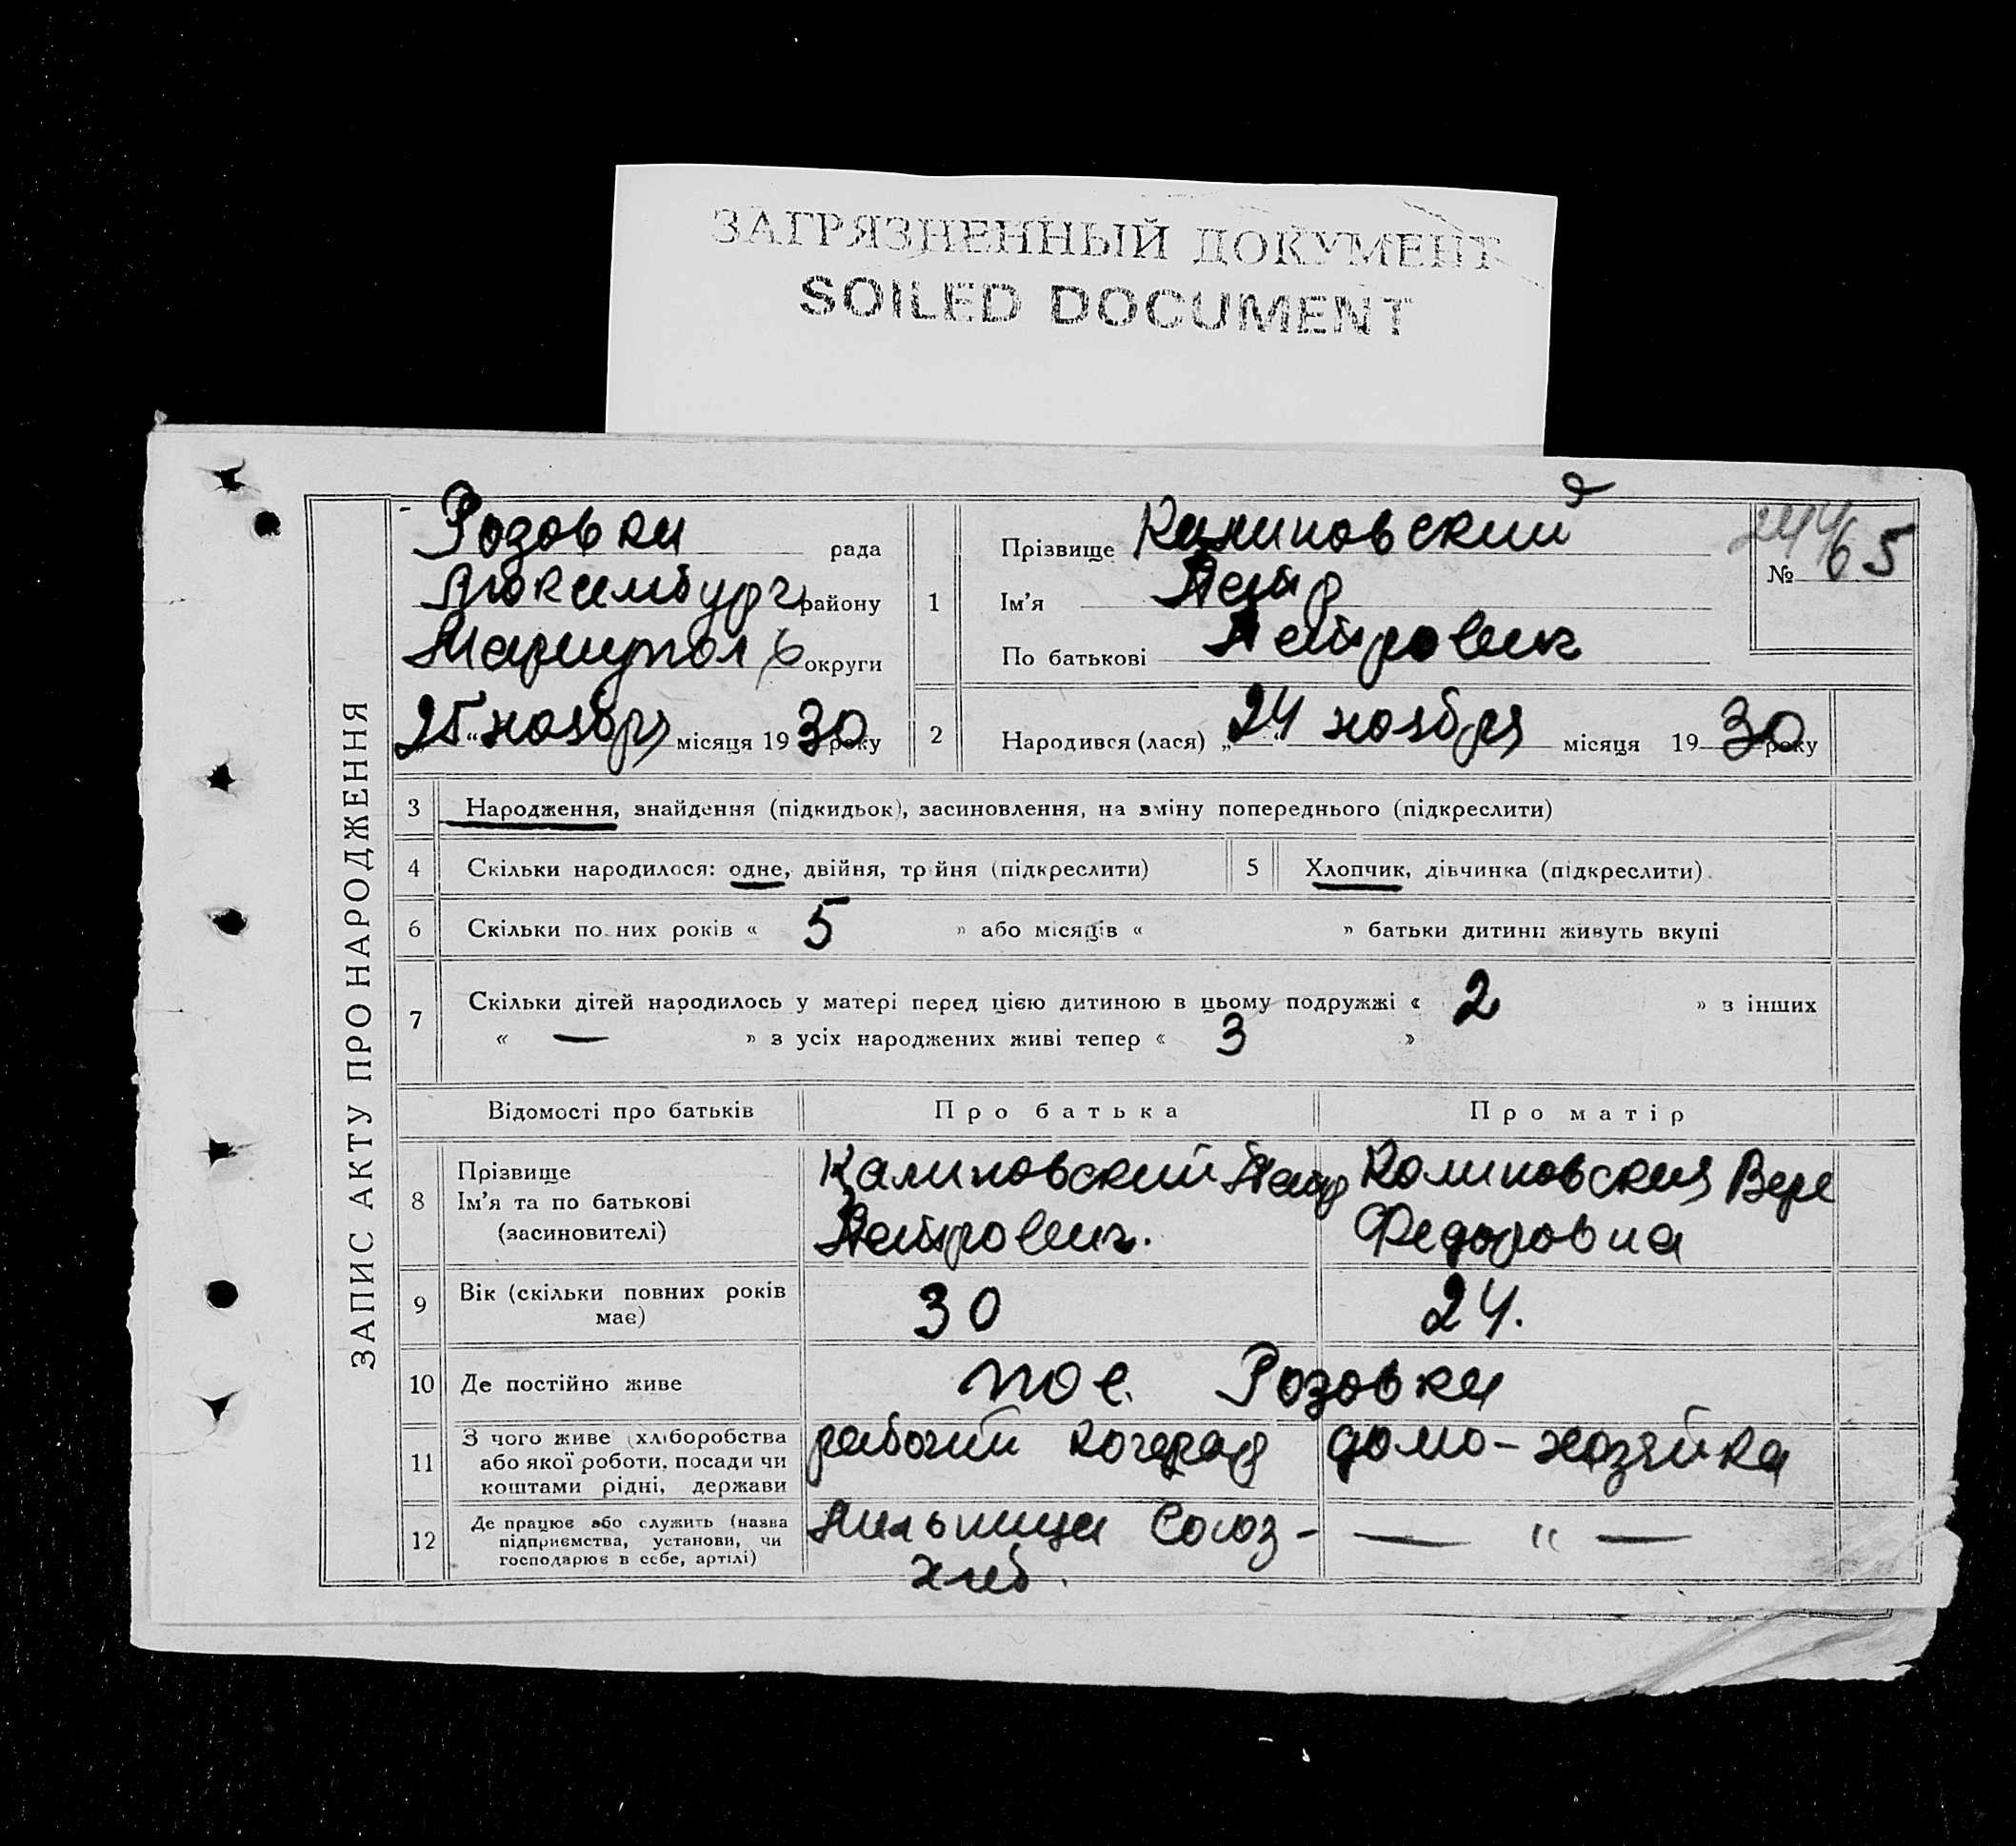 ЗАГРЯЗНЕННЫЙ ДОКУМЕНТ
SOILED DOCUMENT
ЗАПИС АКТУ ПРО НАРОДЖЕННЯ
Розовка рада
Люксембург району
Мариупол округи
25 " ноября місяця 1930 року
1
Прізвище Калиновский
Ім'я Петр
По батькові Петрович
№ 65
2 Народився (лася) „ 24 ноября місяця 1930 року
3 Народження, знайдення (підкидьок), засиновлення, на зміну попереднього (підкреслити)
4 Скільки народилося: одне, двійня, трійня (підкреслити) 5 Хлопчик, дівчинка (підкреслити)
6 Скільки повних років « 5 » або місяців « » батьки дитини живуть вкупі
7 Скільки дітей народилось у матері перед цією дитиною в цьому подружжі « 2 » з інших
« — » з усіх народжених живі тепер « 3 »
Відомості про батьків Про батька Про матір
8 Прізвище
Ім'я та по батькові
(засиновителі)
Калиновский Петр
Петрович.
Калиновская Вера
Федоровна
9 Вік (скільки повних років
має)
30 24.
10 Де постійно живе пос. Розовка
11 З чого живе (хліборобства
або якої роботи, посади чи
коштами рідні, держави
рабочий кочегар домо-хозяйка
12 Де працює або служить (назва
підприємства, установи, чи
господарює в себе, артілі)
Мельница Союз-
хлеб.
— " —